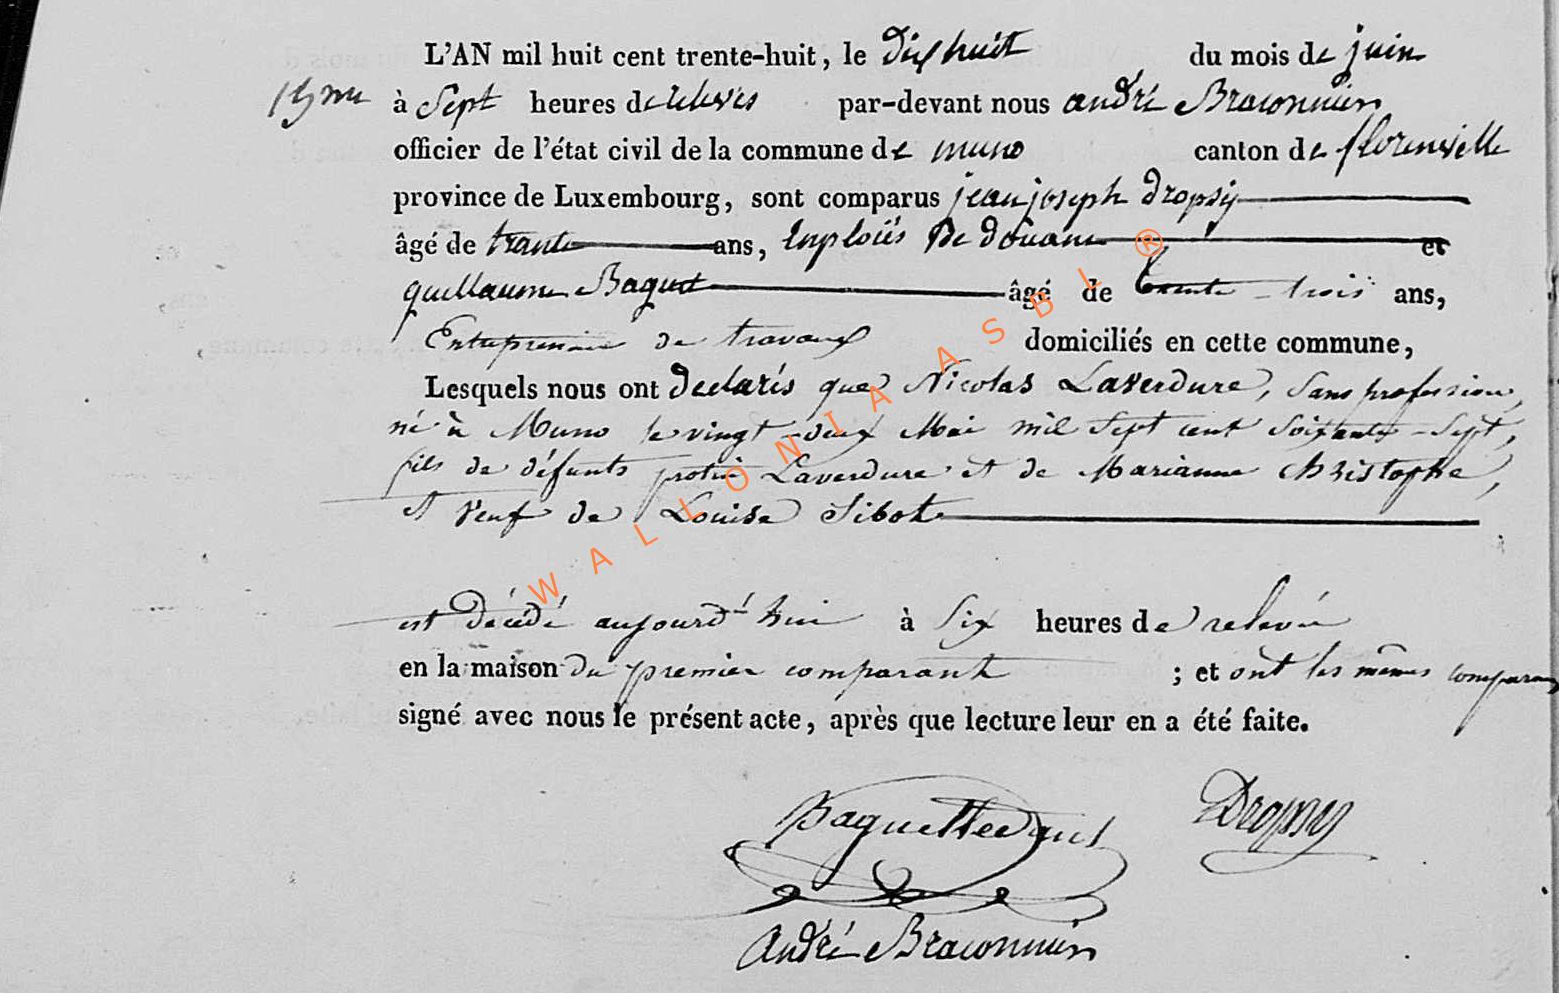 L'AN mil huit cent trente-huit, le dix huit du mois de juin
à Sept heures de relevés par-devant nous andré Braconnier
officier de l'état civil de la commune de muno canton de florenville
province de Luxembourg, sont comparus jean joseph Dropsy
âgé de trante ans, Emploiés De doüane et
guillaume Baguet âgé de trente-trois ans,
Entreprenaire de travaux domiciliés en cette commune,
Lesquels nous ont declarés que Nicolas Laverdure, sans profession,
né à Muno le vingt-deux Mai mil sept cent soixante-sept,
fils de défunts protin Laverdure et de Marianne Christophe,
et veuf de Louise Sibot
est décédé aujourd'hui à Six heures de relevée
en la maison du premier comparant ; et ont les mêmes comparans
signé avec nous le présent acte, après que lecture leur en a été faite.
Dropsy
André Braconnier
WALLONIA ASBL ®